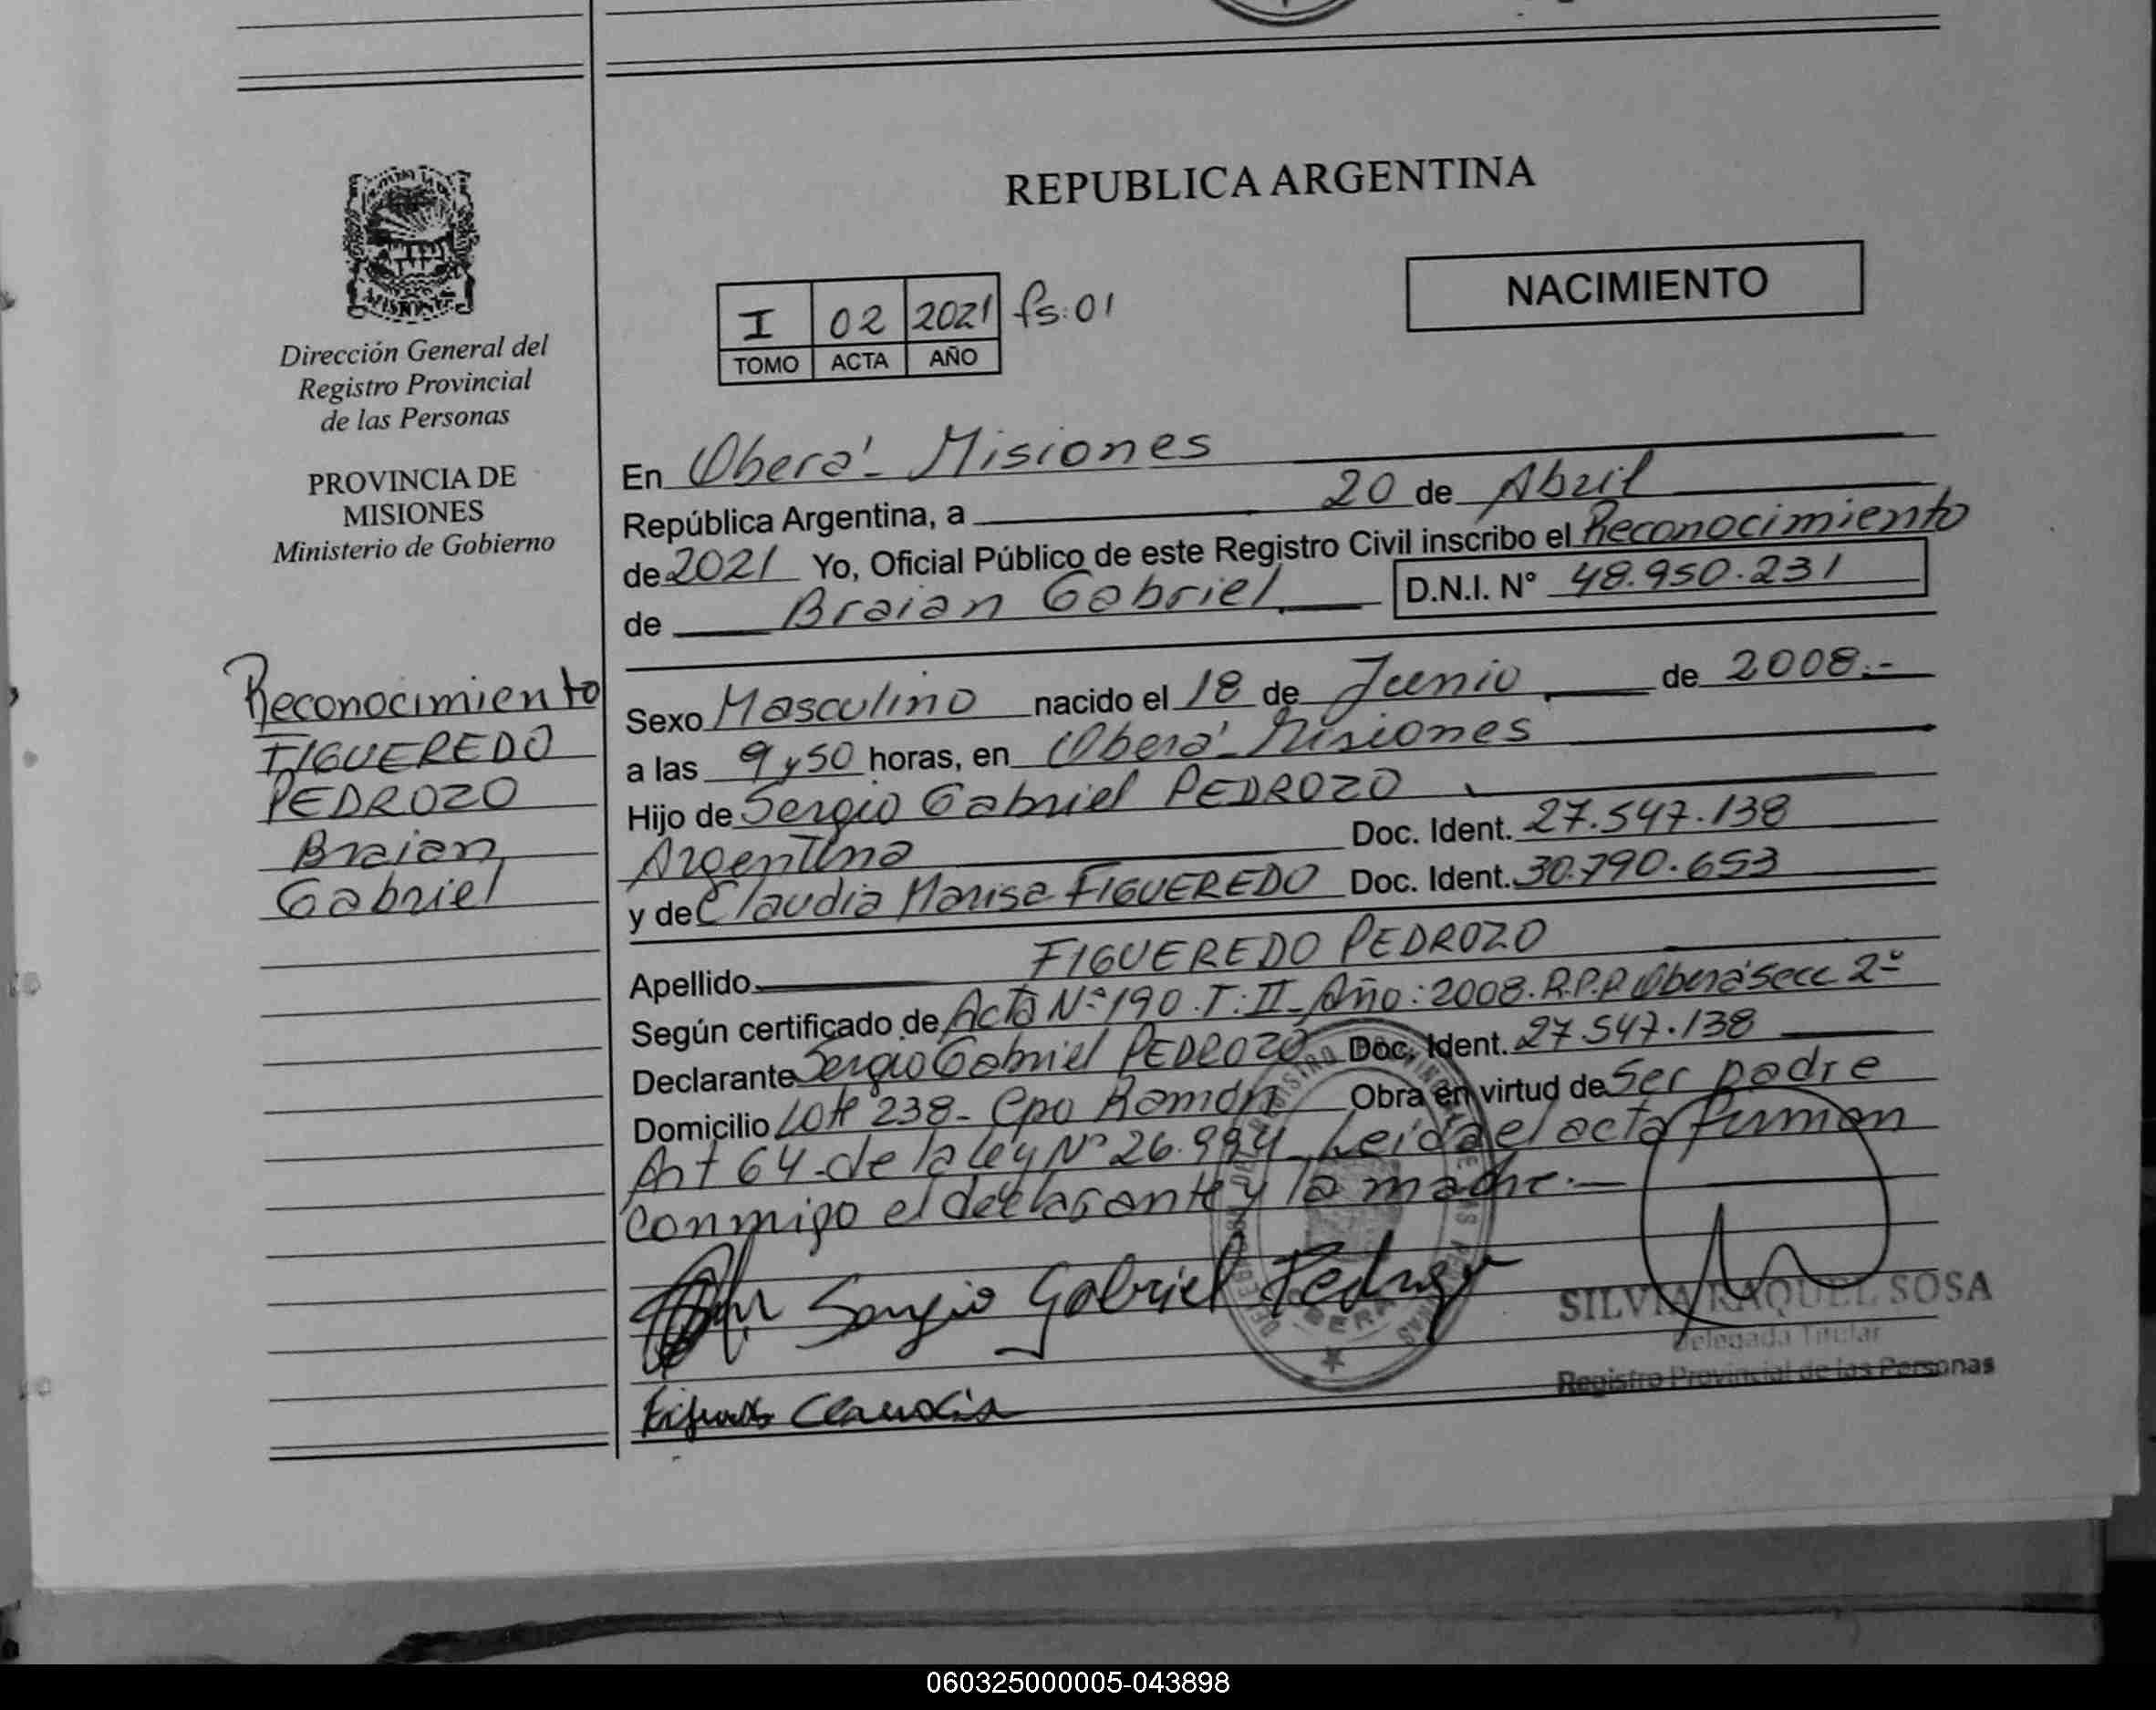 REPUBLICA ARGENTINA
NACIMIENTO
I 02 2021 fs:01
TOMO ACTA AÑO
MISIONES
Dirección General del
Registro Provincial
de las Personas
PROVINCIA DE
MISIONES
Ministerio de Gobierno
Reconocimiento
FIGUEREDO
PEDROZO
Braian
Gabriel
En Oberá - Misiones
República Argentina, a 20 de Abril
de 2021 Yo, Oficial Público de este Registro Civil inscribo el Reconocimiento
de Braian Gabriel D.N.I. N° 48.950.231
Sexo Masculino nacido el 18 de Junio de 2008.-
a las 9 y 50 horas, en Oberá - Misiones
Hijo de Sergio Gabriel PEDROZO
Argentina Doc. Ident. 27.547.138
y de Claudia Marisa FIGUEREDO Doc. Ident. 30.790.653
Apellido FIGUEREDO PEDROZO
Según certificado de Acta N° 190. T: II - Año: 2008. R.P.P Oberá Secc 2°
Declarante Sergio Gabriel PEDROZO Doc. Ident. 27.547.138
Domicilio Lote 238 - Cpo Ramón Obra en virtud de Ser padre
Art 64 - de la Ley N° 26.994 - Leída el acta firman
conmigo el declarante y la madre.-
Sergio Gabriel Pedrozo
SILVIA RAQUEL SOSA
Delegada Titular
Registro Provincial de las Personas
Claudia
060325000005-043898